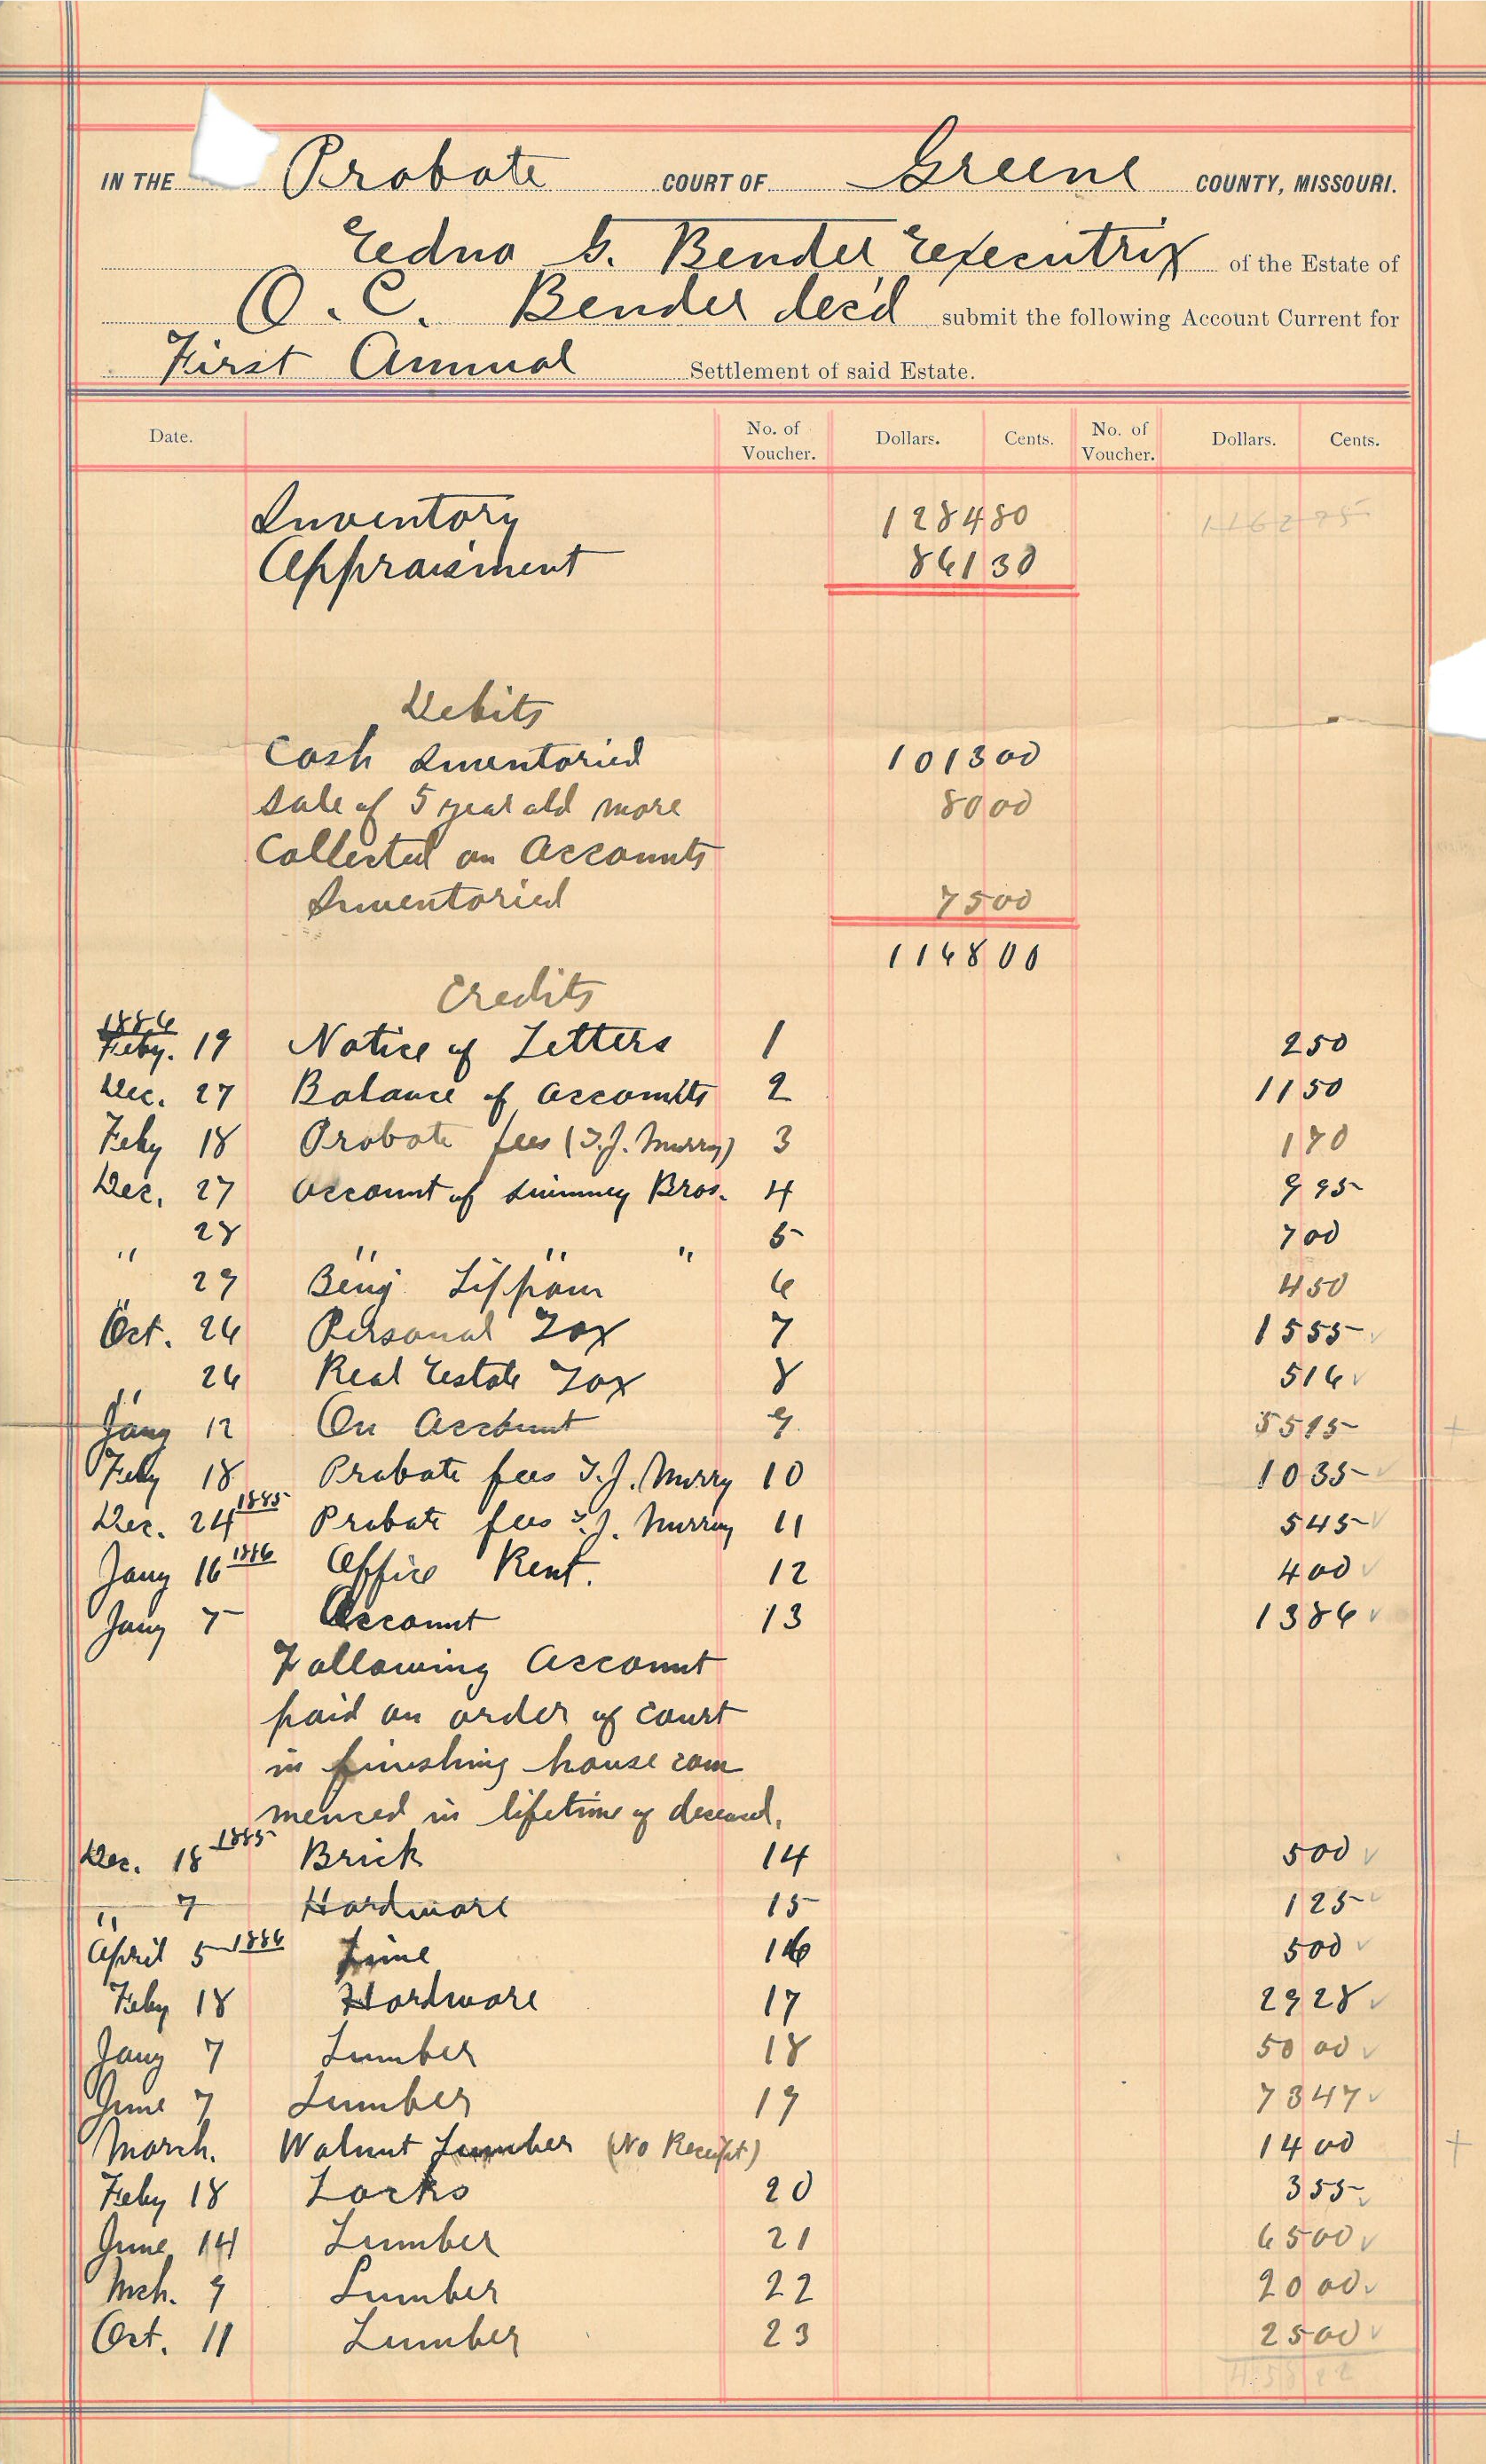 IN THE Probate COURT OF Greene COUNTY, MISSOURI.
Edna G. Bender Executrix of the Estate of
O. C. Bender dec'd submit the following Account Current for
First Annual Settlement of said Estate.
Date. No. of Voucher. Dollars. Cents. No. of Voucher. Dollars. Cents.
Inventory 1284 80
Appraisment 861 30
Debits
Cash Inventoried 1013 00
Sale of 5 year old mare 80 00
Collected on Accounts
Inventoried 75 00
1168 00
Credits
1886
Feby. 19 Notice of Letters 1 2 50
Dec. 27 Balance of Accounts 2 11 50
Feby 18 Probate fees (T. J. Murry) 3 1 70
Dec. 27 Account of Bros. 4 9 95
" 28 " " " 5 7 00
" 29 Benj Lippman 6 4 50
Oct. 26 Personal Tax 7 15 55
" 26 Real Estate Tax 8 5 16
Jany 12 On Account 9 55 95
Feby 18 Probate fees T. J. Murry 10 10 35
Dec. 24 1885 Probate fees T. J. Murry 11 5 45
Jany 16 1886 Office Rent. 12 4 00
Jany 7 Account 13 13 86
Following Account
paid on order of court
in finishing house com
menced in lifetime of deceased,
Dec. 18 1885 Brick 14 5 00
" 7 Hardware 15 1 25
April 5 1886 Lime 16 5 00
Feby 18 Hardware 17 29 28
Jany 7 Lumber 18 50 00
June 7 Lumber 19 73 47
March. Walnut Lumber (No Receipt) 14 00
Feby 18 Locks 20 3 55
June 14 Lumber 21 65 00
Mch. 9 Lumber 22 20 00
Oct. 11 Lumber 23 25 00